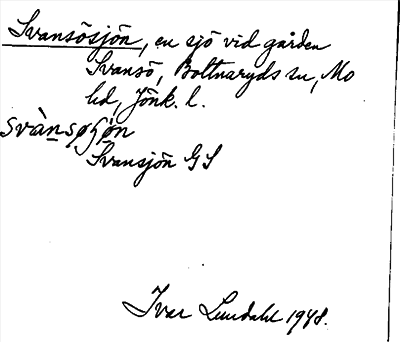 Svansösjön, en sjö vid gården
Svansö, Bottnaryds sn, Mo
hd, Jönk. l.
svànsøʃøn
Svansjön GS
Ivar Lundahl 1948.